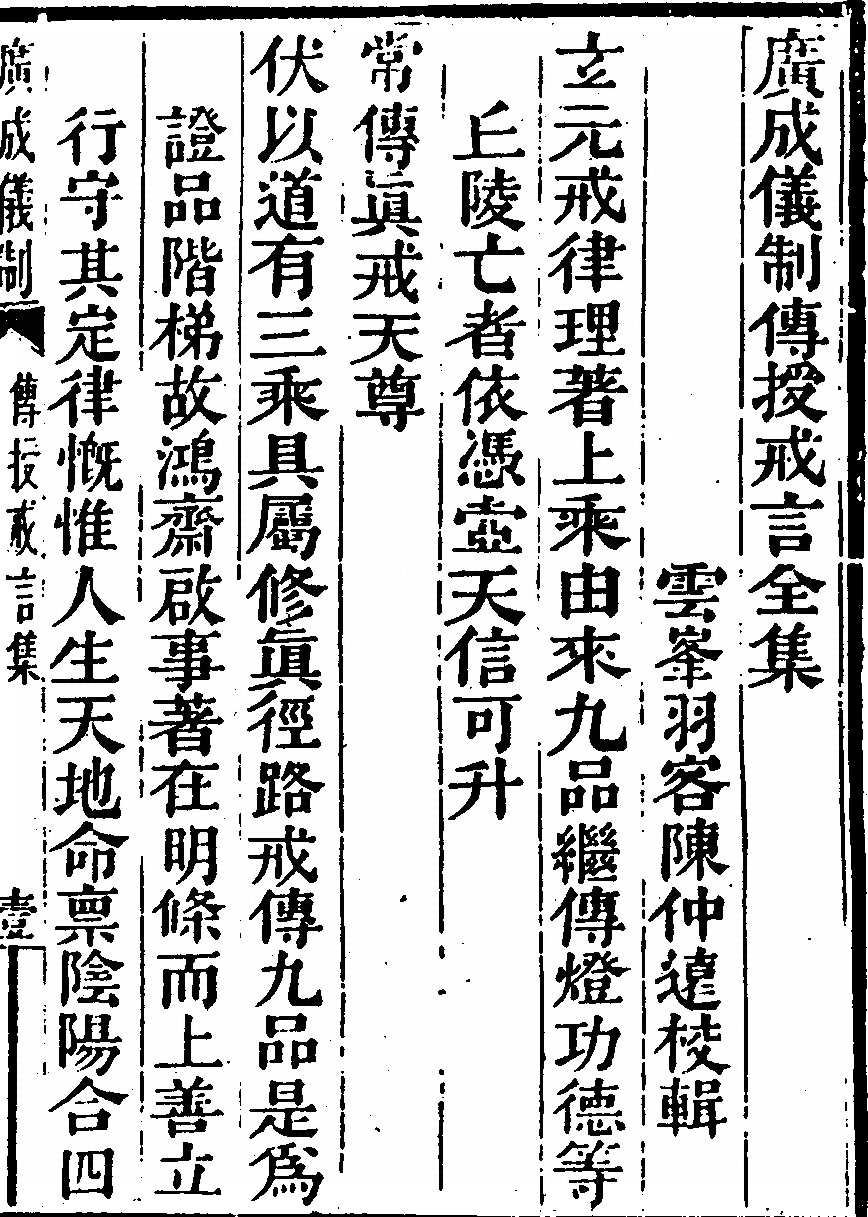 廣成儀制傳授戒言全集
雲峯羽客陳仲遠校輯
玄元戒律理著上乘由來九品繼傳燈功德等
丘陵亡者依憑壺天信可升
常傳眞戒天尊
伏以道有三乘具屬修眞徑路戒傳九品是爲
證品階梯故鴻齋啟事著在明條而上善立
行守其定律慨惟人生天地命禀陰陽合四
廣成儀制 傳授戒言集 壹